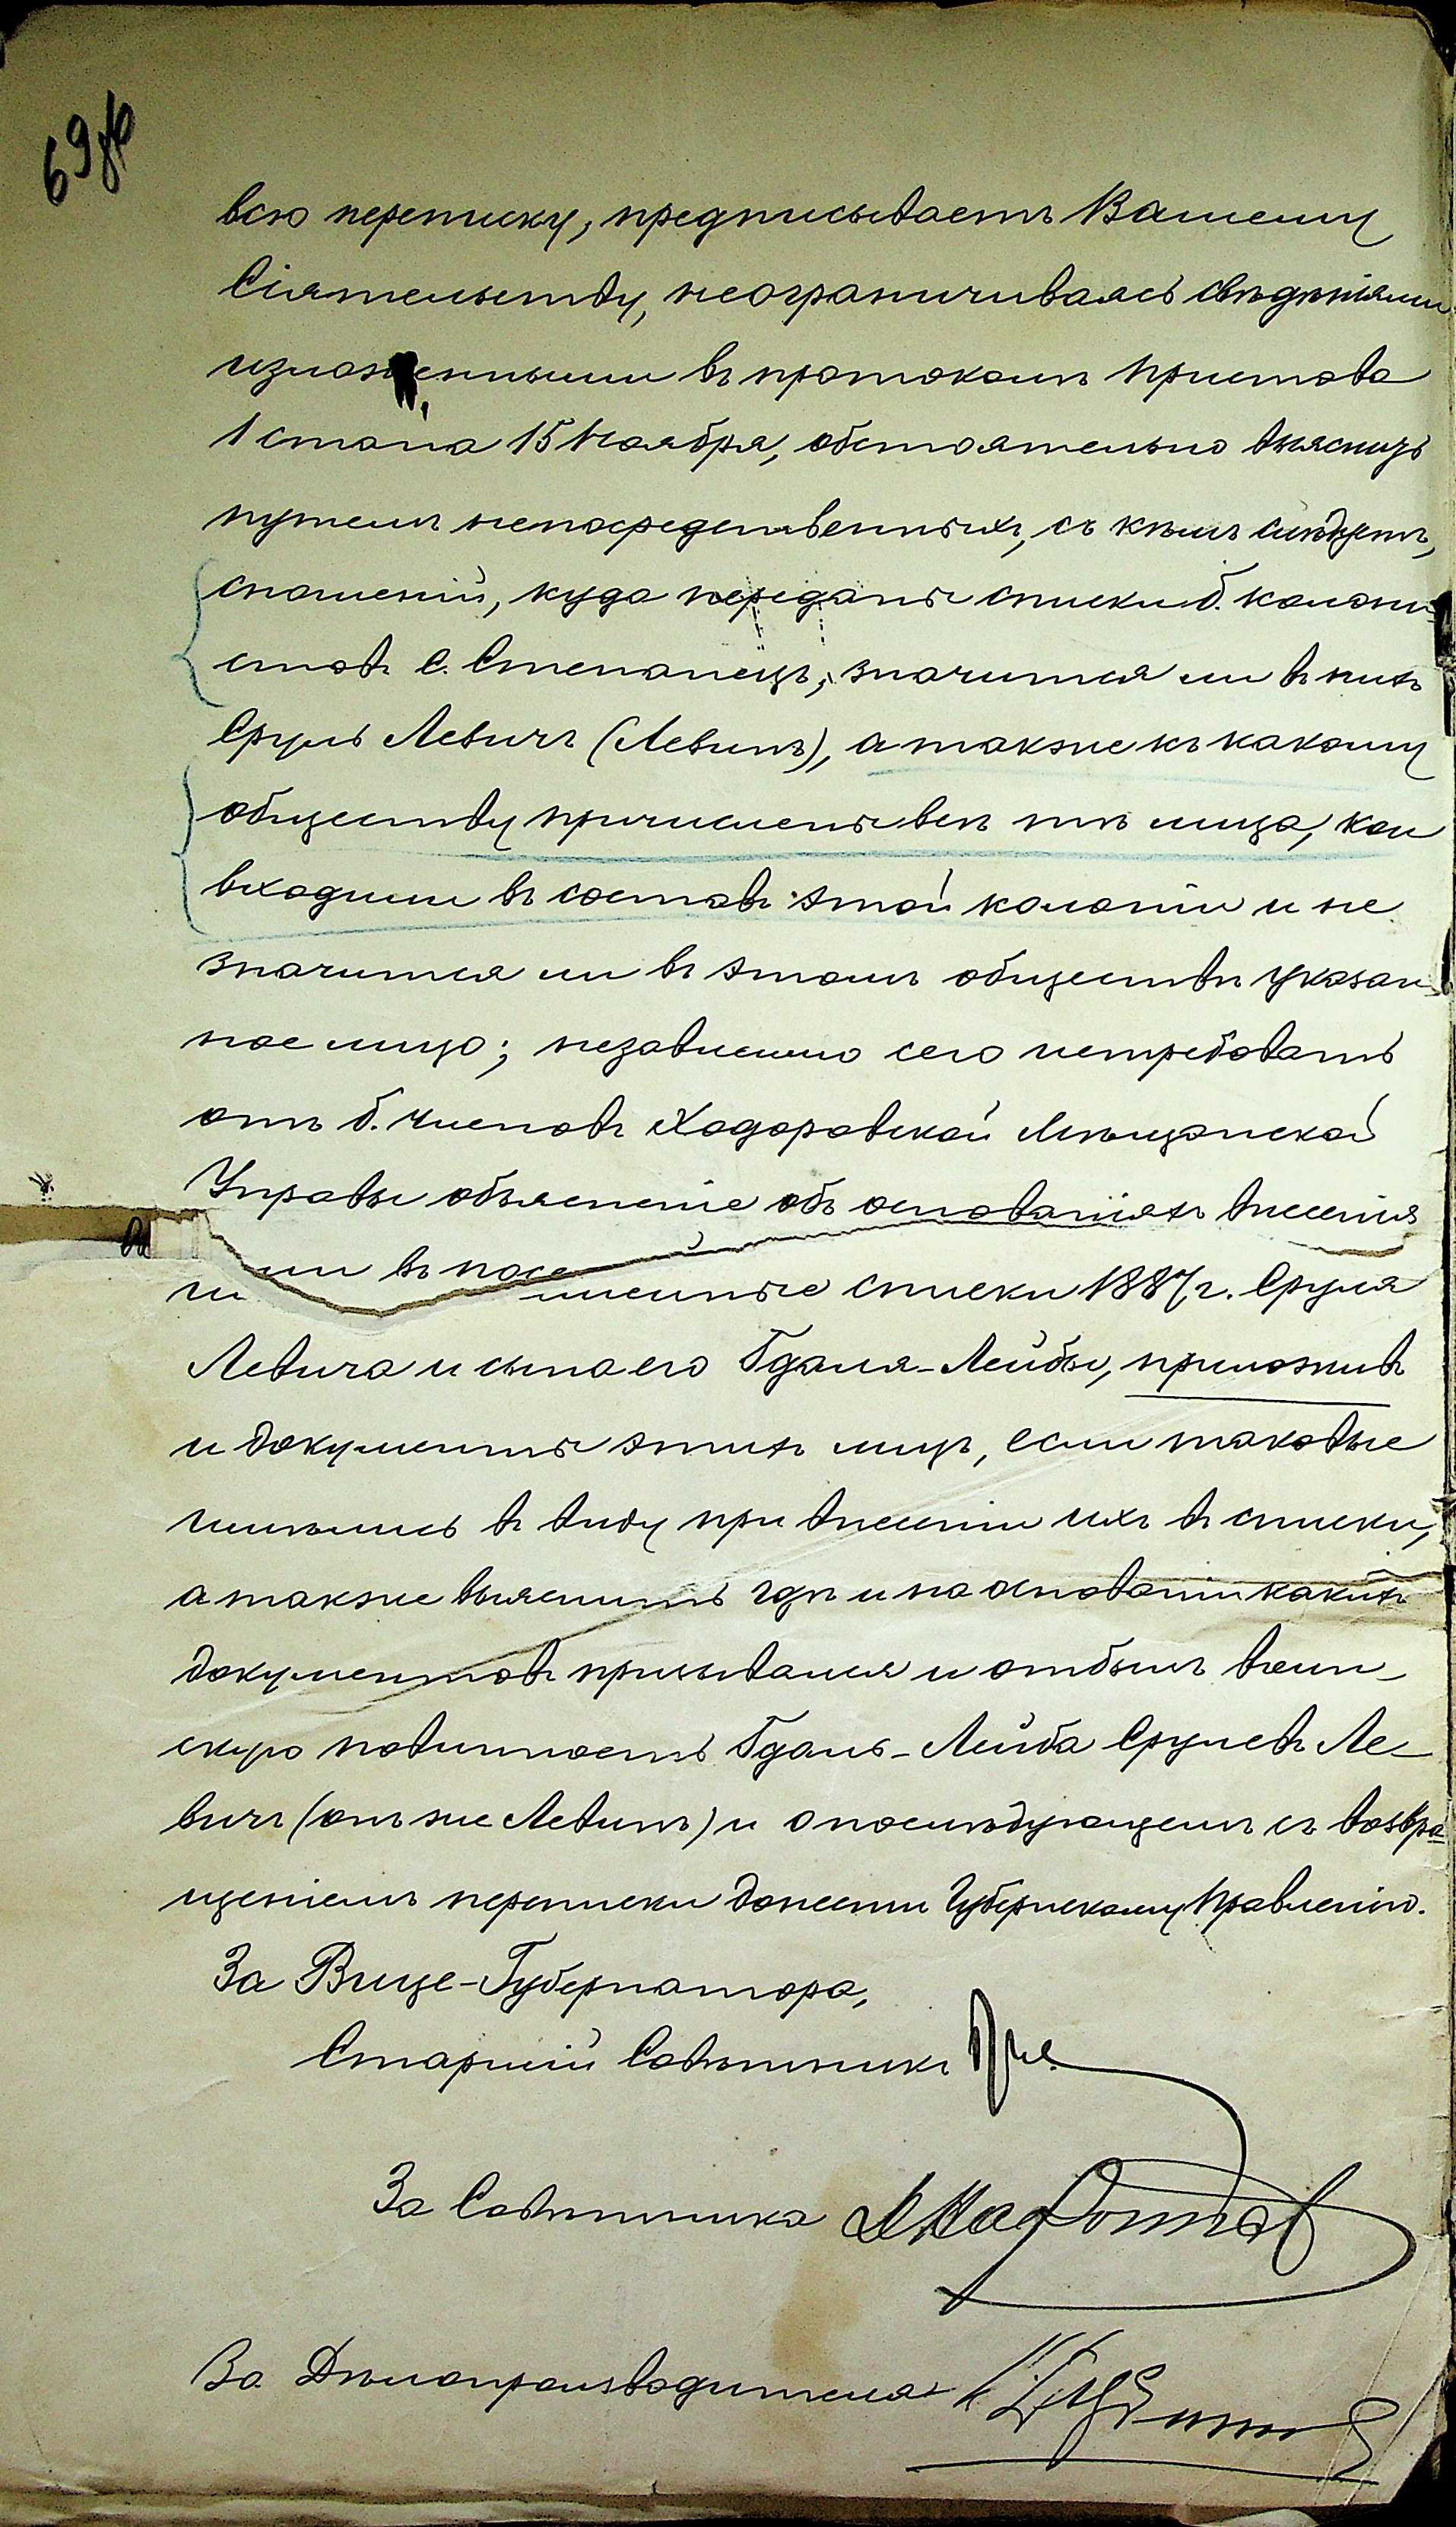 69 об
всю переписку, предписываетъ Вашему
Сіятельству, неограничиваясь свѣдѣніями
изложенными въ протоколѣ пристава
1 стана 15 Ноября, обстоятельно выяснить
путемъ непосредственныхъ, съ кѣмъ слѣдуетъ,
сношеній, куда переданы списки б. колони-
стовъ с. Степанецъ, значится ли въ нихъ
Сруль Левичъ (Левинъ), а также къ какому
обществу причислены всѣ тѣ лица, кои
входили въ составъ этой колоніи и не
значится ли въ этомъ обществѣ указан-
ное лицо; независимо сего истребовать
отъ б. членовъ Ходоровской Мѣщанской
Управы объясненіе объ основаніяхъ внесенія
ими въ посемейные списки 1887 г. Сруля
Левича и сына его Гдаля-Лейбы, приложивъ
и документы этихъ лицъ, если таковые
имѣлись въ виду при внесеніи ихъ въ списки,
а также выяснить гдѣ и на основаніи какихъ
документовъ призывался и отбылъ воин-
скую повинность Гдаль-Лейба Срулевъ Ле-
вичъ (онъ же Левинъ) и о послѣдующемъ съ возвра-
щеніемъ переписки донести Губернскому Правленію.
За Вице-Губернатора,
Старшій Совѣтникъ
За Совѣтника
За Дѣлопроизводителя